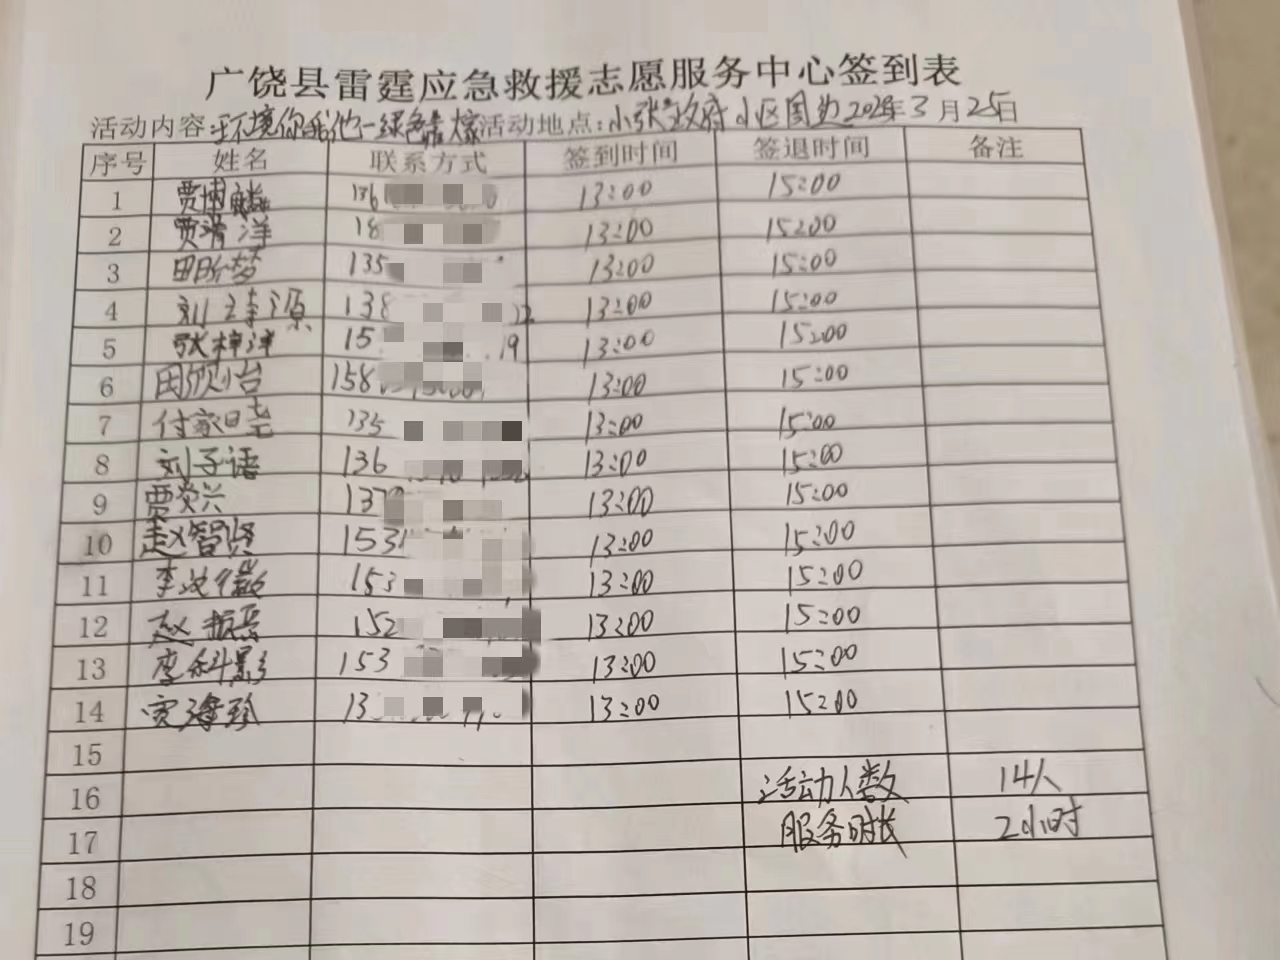 广饶县雷霆应急救援志愿服务中心签到表
活动内容:环境你我他一绿色 活动地点:小张政府小区周边 3月25日
序号 姓名 联系方式 签到时间 签退时间 备注
1 贾博麟 136 13:00 15:00
2 贾清洋 18 13:00 15:00
3 田盼梦 135 13:00 15:00
4 刘 源 138 13:00 15:00
5 张梓洋 15 19 13:00 15:00
6 田欣怡 158 13:00 15:00
7 付家尧 135 13:00 15:00
8 刘子语 136 13:00 15:00
9 贾奕兴 137 13:00 15:00
10 赵智贤 153 13:00 15:00
11 李 153 13:00 15:00
12 赵振 152 13:00 15:00
13 李科影 153 13:00 15:00
14 贾 珍 13 13:00 15:00
15
16 活动人数 14人
17 服务时长 2小时
18
19